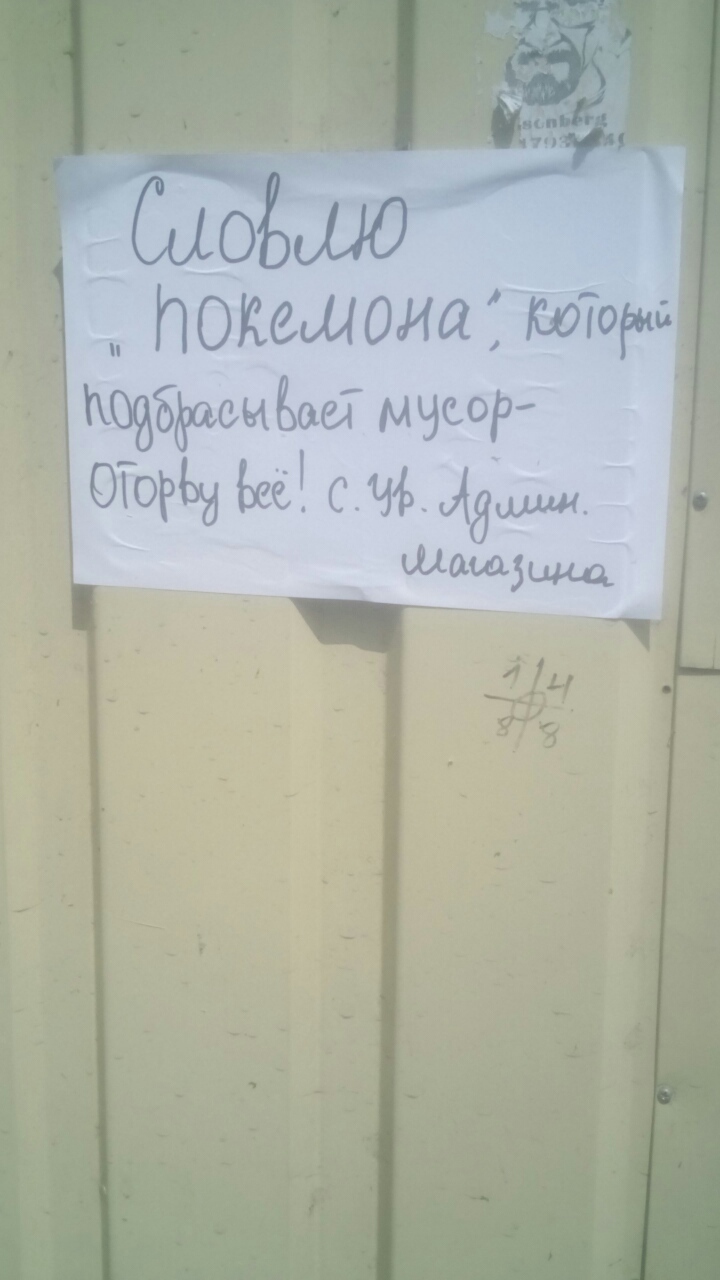 Словлю
„покемона“, который
подбрасывает мусор-
Оторву всё! с. ур. Админ.
магазина
1 4
8 8